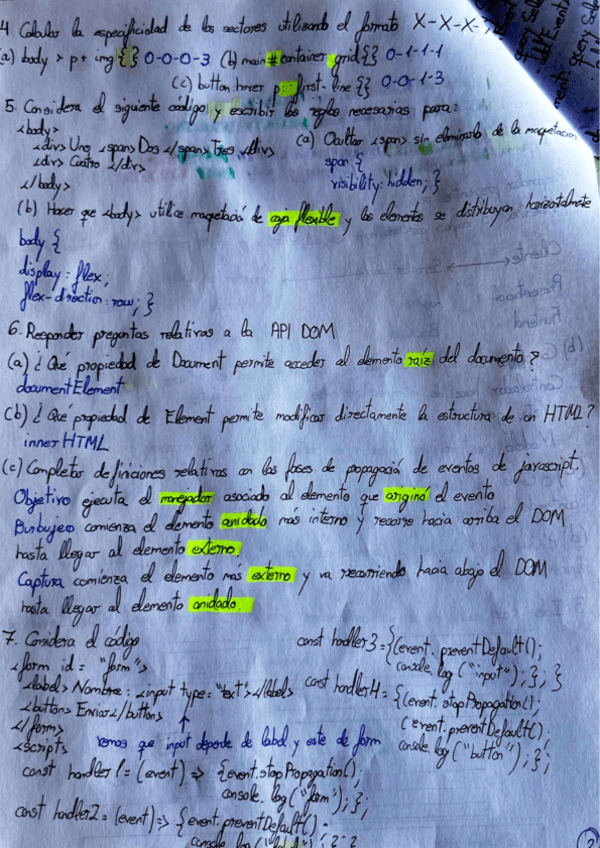 4 Calcular la especificidad de los sectores utilizando el formato X-X-X-
(a) body > p + img {} 0-0-0-3 (b) main #container .grid {} 0-1-1-1
(c) button:hover p::first-line {} 0-0-1-3
5. Considera el siguiente codigo y escribir las reglas necesarias para:
<body>
<div> Uno <span> Dos </span> Tres </div>
<div> Cuatro </div>
</body>
(a) Ocultar <span> sin eliminarlo de la maquetacion
span {
visibility: hidden; }
(b) Hacer que <body> utilice maquetación de caja flexible y los elementos se distribuyan horizontalmente
body {
display: flex;
flex-direction: row; }
6. Responder preguntas relativas a la API DOM
(a) ¿Qué propiedad de Document permite acceder al elemento raíz del documento?
documentElement
(b) ¿Qué propiedad de Element permite modificar directamente la estructura de un HTML?
innerHTML
(c) Completar definiciones relativas con las fases de propagació de eventos de javascript.
Objetivo ejecuta el manejador asociado al elemento que originó el evento
Burbujeo comienza el elemento anidado más interno y recorre hacia arriba el DOM
hasta llegar al elemento externo.
Captura comienza el elemento más externo y va recorriendo hacia abajo el DOM
hasta llegar al elemento anidado.
7. Considera el código
<form id = "form">
<label> Nombre: <input type="text"></label>
<button> Enviar </button>
</form>
<script>
vemos que input depende de label y este de form
const handler1 = (event) => {event.stopPropagation();
console.log("form");};
const handler2 = (event) => {event.preventDefault();
const handler3 = {(event.preventDefault();
console.log("input");};}
const handler4 = {(event.stopPropagation();
(event.preventDefault();
console.log("button");};